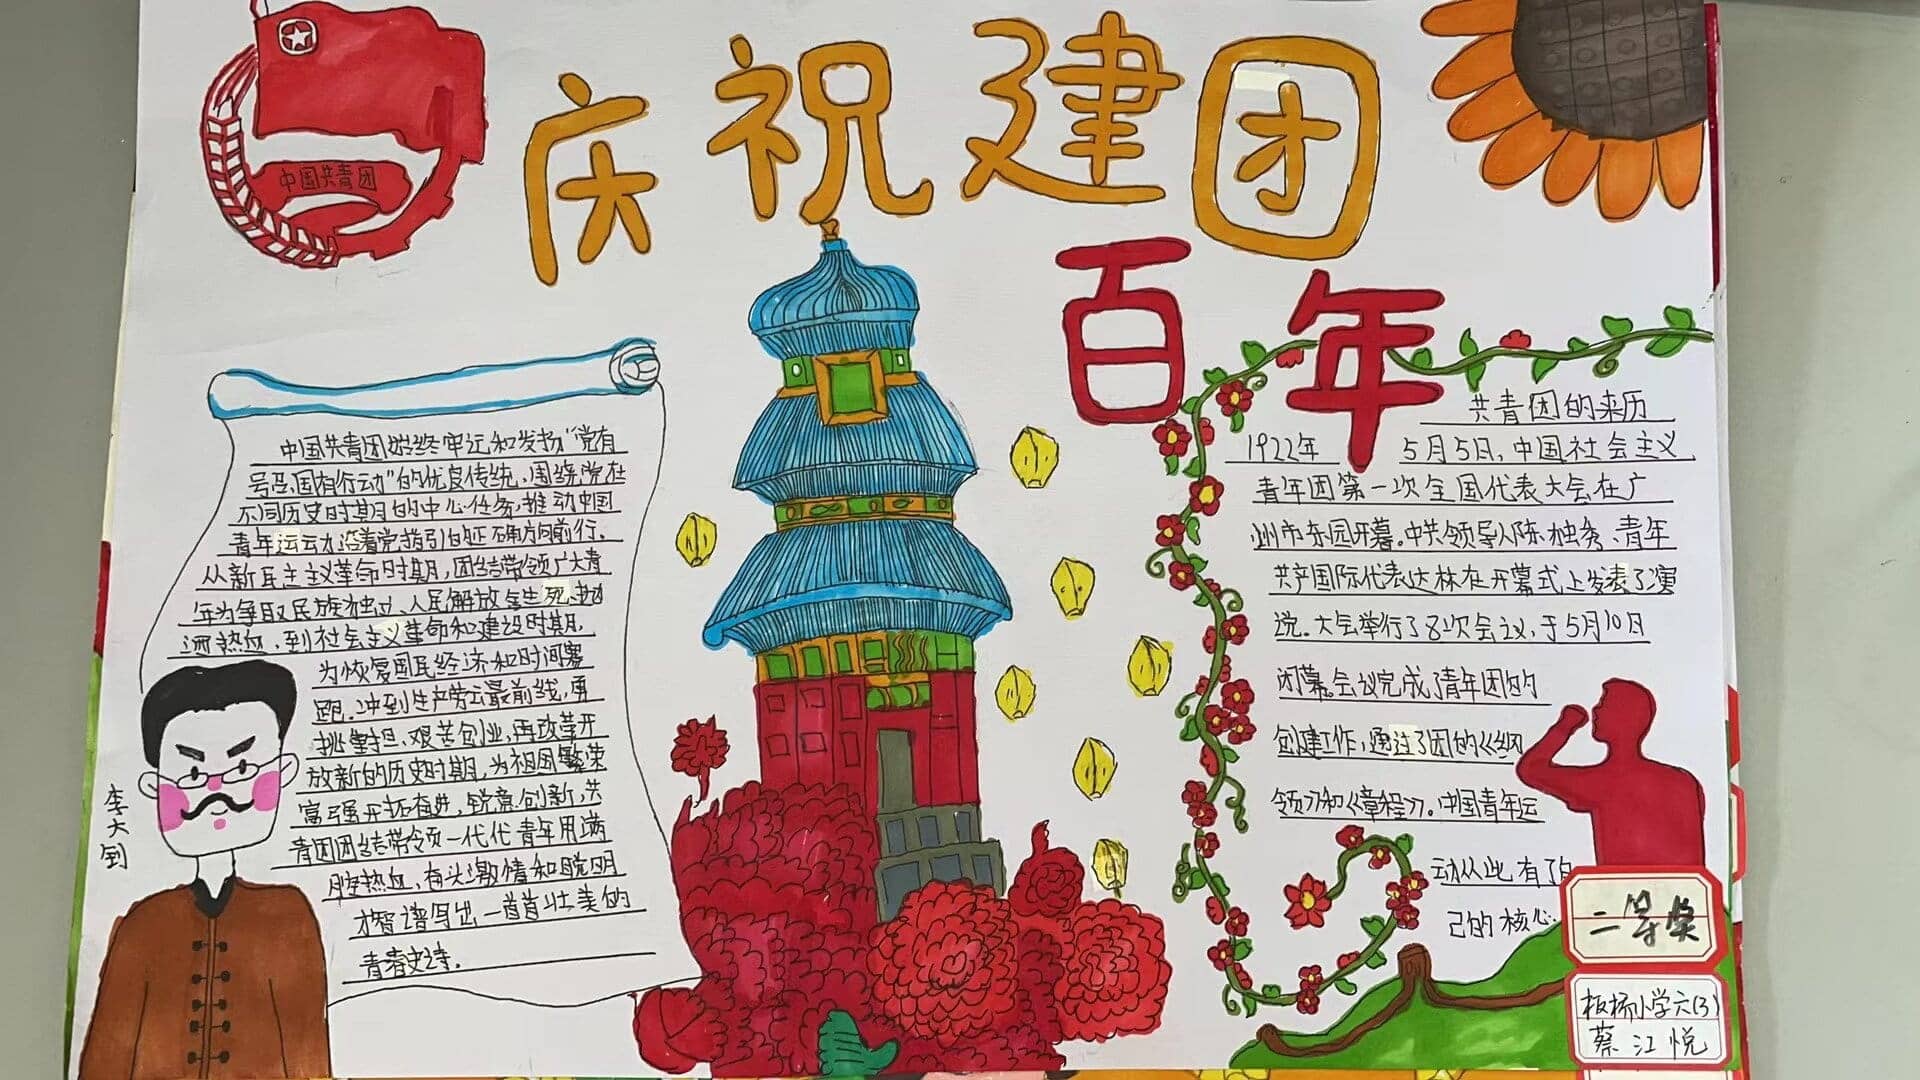 庆祝建团
百年
中国共青团
中国共青团始终牢记和发扬“党有
号召,团有行动”的优良传统,围绕党在
不同历史时期的中心任务,推动中国
青年运动沿着党指引的正确方向前行.
从新民主主义革命时期,团结带领广大青
年为争取民族独立、人民解放
洒热血,到社会主义革命和建设时期,
为恢复国民经济和时间赛
跑.冲到生产劳云最前线,勇
挑重担、艰苦创业,再改革开
放新的历史时期,为祖国繁荣
富强开拓奋进,锐意创新,共
青团团结带领一代代青年用满
腔热血,有头激情和聪明
才智谱写出一首首壮美的
青春史诗.
李大钊
共青团的来历
1922年 5月5日,中国社会主义
青年团第一次全国代表大会在广
州市东园开幕。中共领导人陈独秀、青年
共产国际代表达林在开幕式上发表了演
说。大会举行了8次会议,于5月10日
闭幕。会议完成了青年团的
创建工作,通过了团的《纲
领》和《章程》。中国青年运
动从此有了自
己的核心
二等奖
板桥小学六(3)
蔡江悦